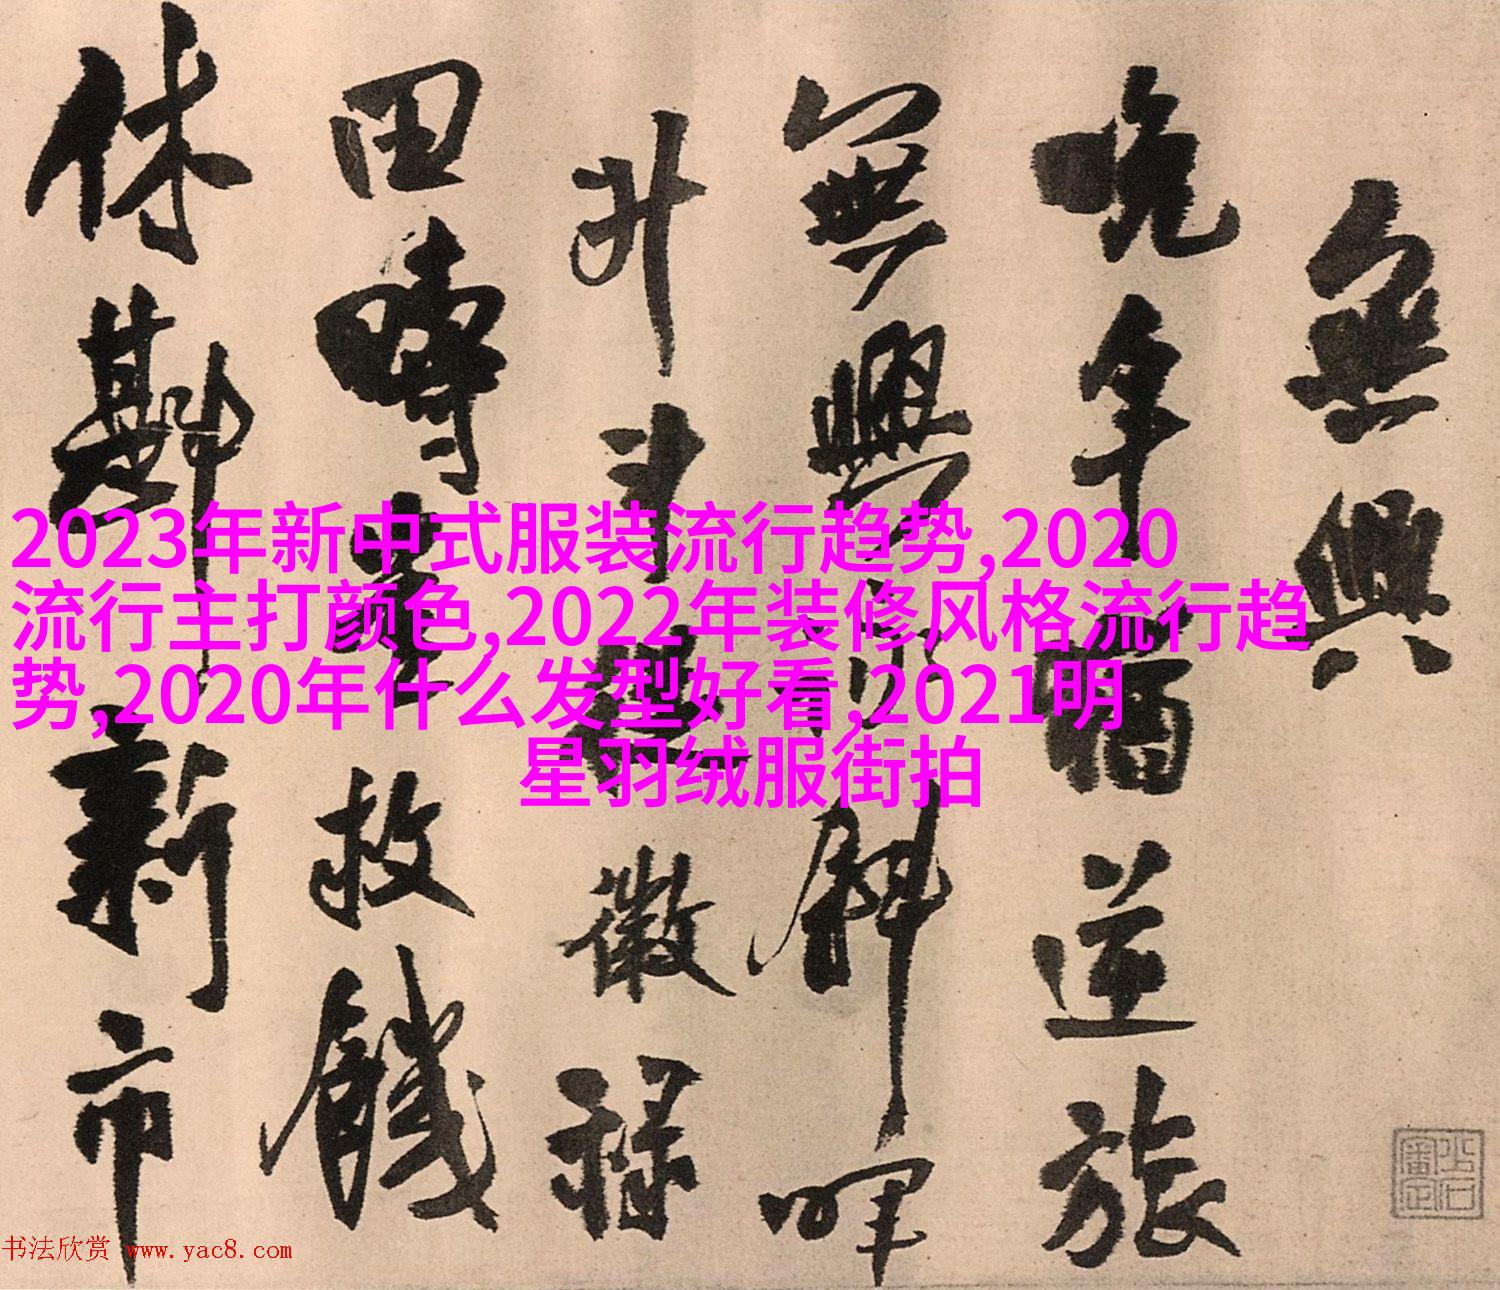 無興
晚年猶逆旅
無興斜暉
升斗微禄
田疇救饑
休斟新市
2023年新中式服装流行趋势,2020
流行主打颜色,2022年装修风格流行趋
势,2020年什么发型好看,2021明
星羽绒服街拍
书法欣赏 www.yac8.com